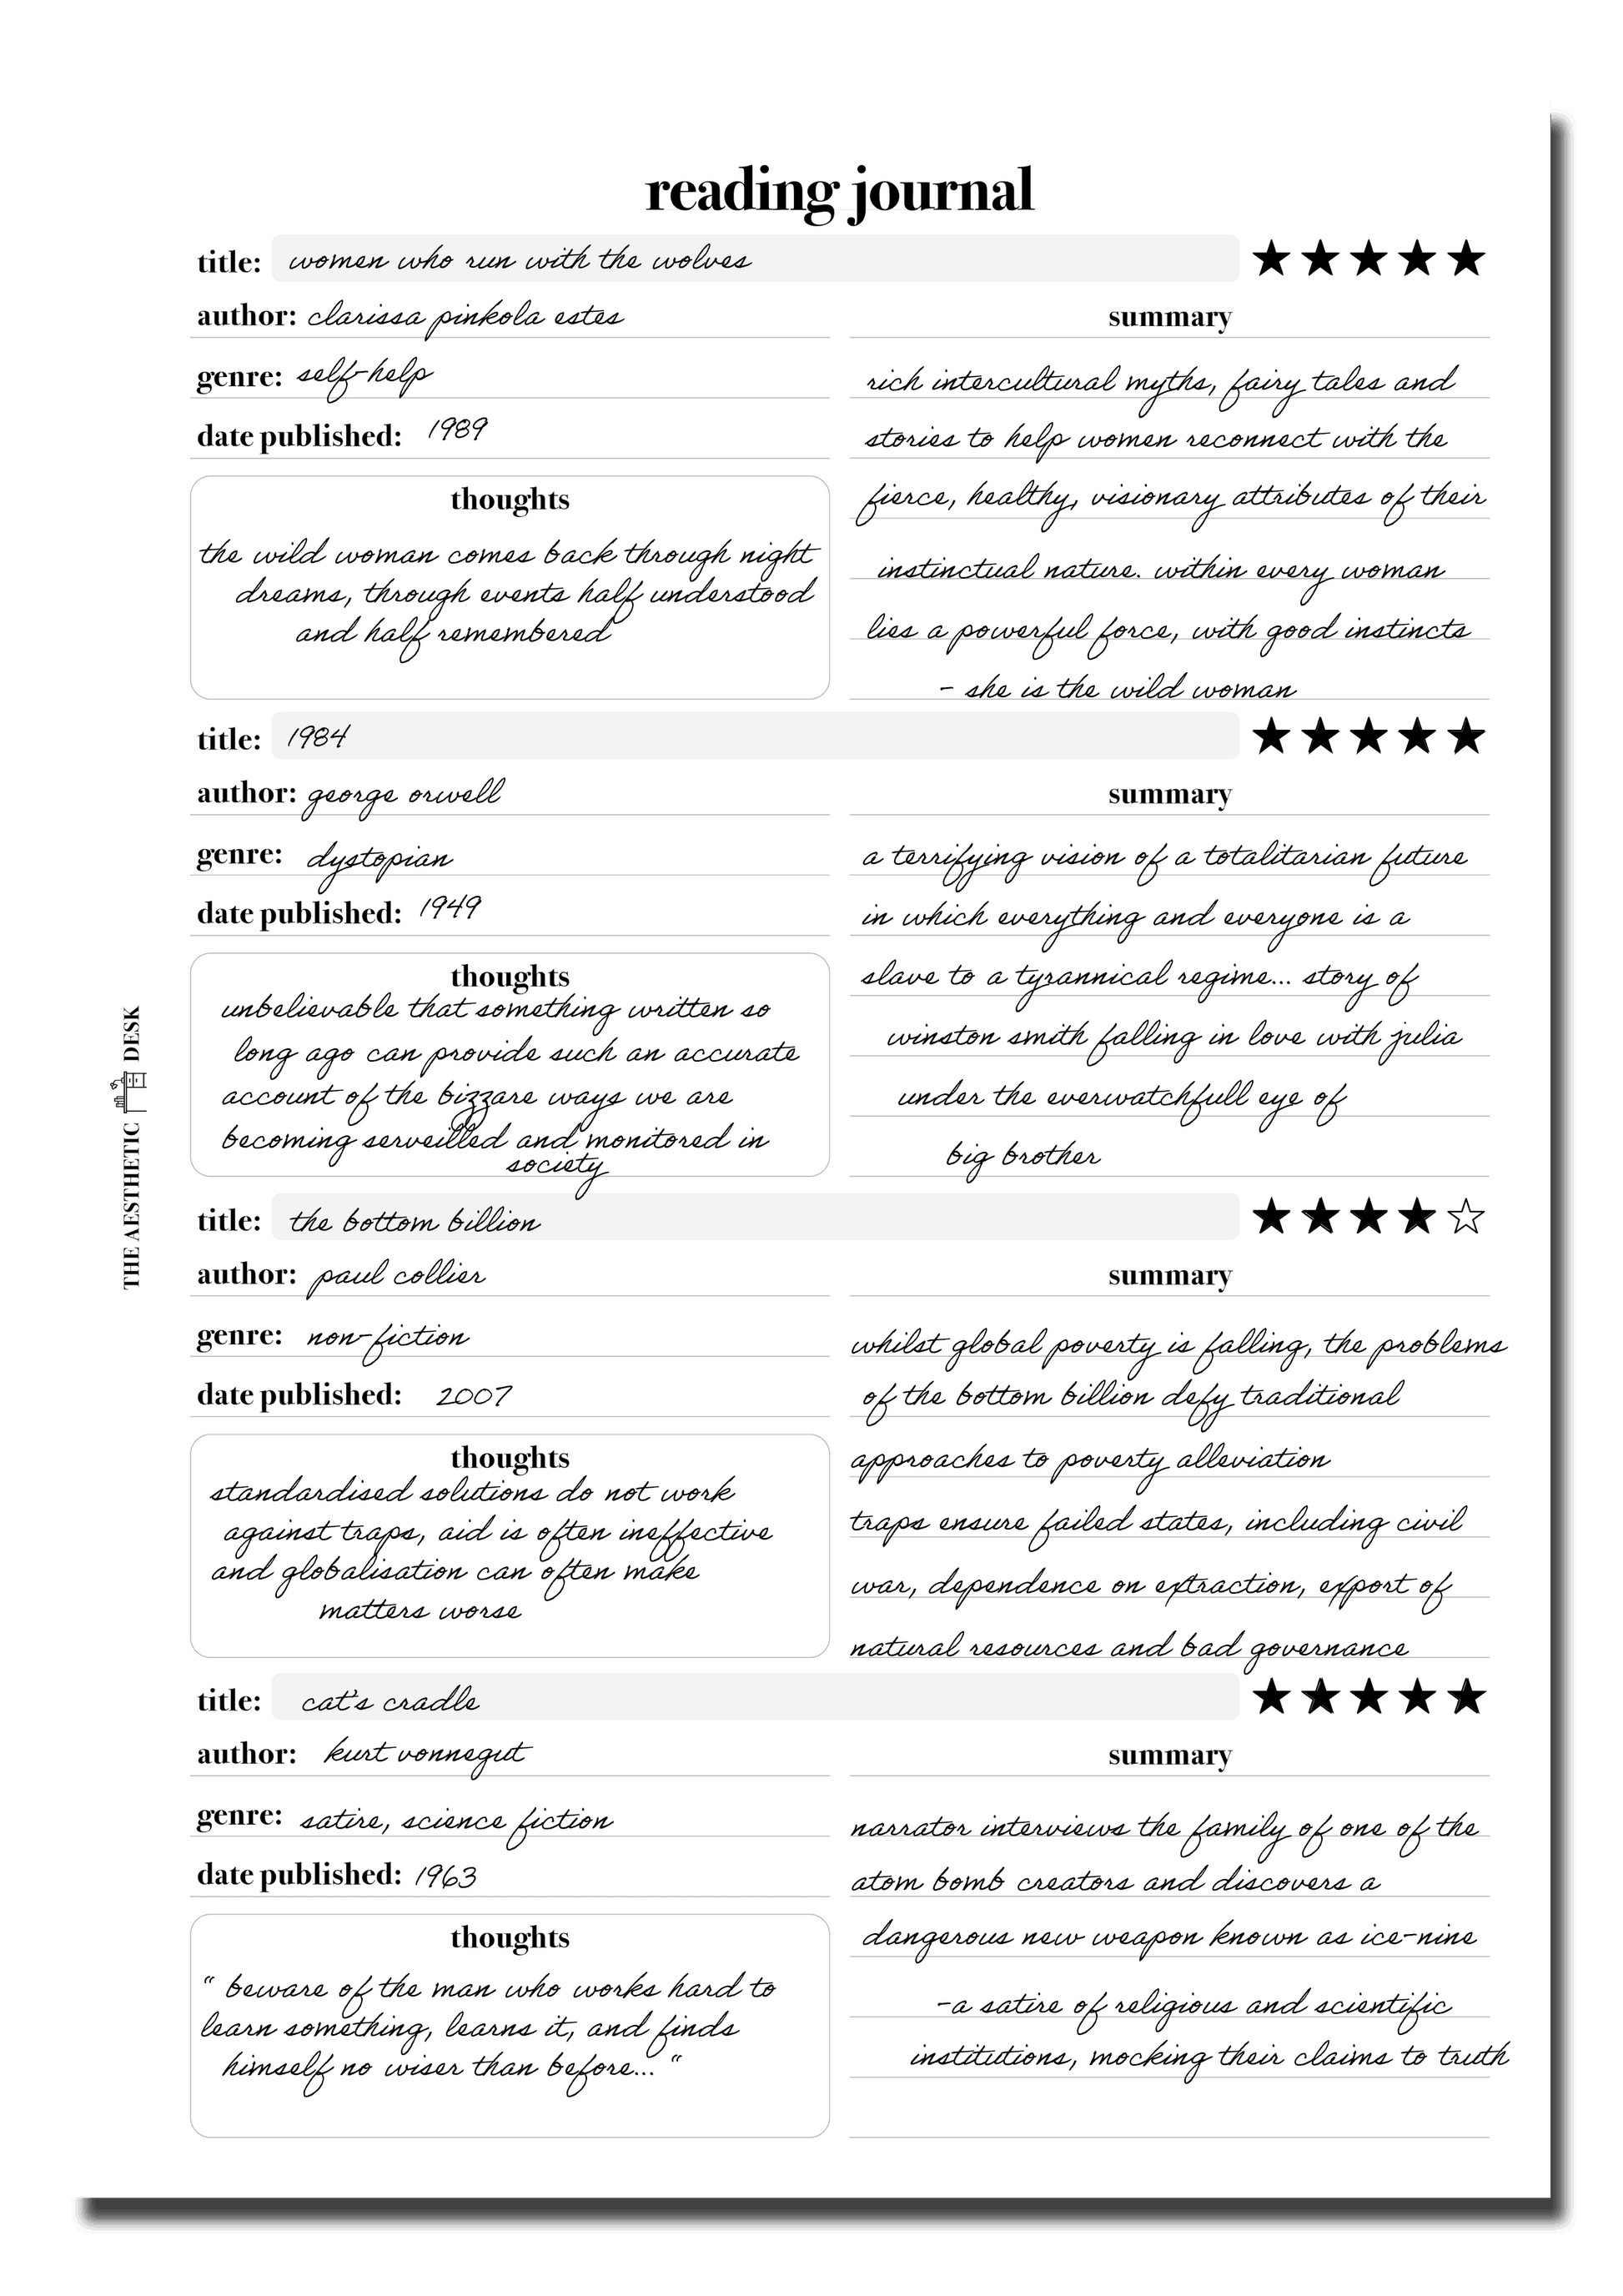 reading journal
title: women who run with the wolves
★★★★★
author: clarissa pinkola estes
genre: self-help
date published: 1989
thoughts
the wild woman comes back through night
dreams, through events half understood
and half remembered
summary
rich intercultural myths, fairy tales and
stories to help women reconnect with the
fierce, healthy, visionary attributes of their
instinctual nature. within every woman
lies a powerful force, with good instincts
- she is the wild woman
title: 1984
★★★★★
author: george orwell
genre: dystopian
date published: 1949
thoughts
unbelievable that something written so
long ago can provide such an accurate
account of the bizzare ways we are
becoming serveilled and monitored in
society
summary
a terrifying vision of a totalitarian future
in which everything and everyone is a
slave to a tyrannical regime... story of
winston smith falling in love with julia
under the everwatchfull eye of
big brother
title: the bottom billion
★★★★☆
author: paul collier
genre: non-fiction
date published: 2007
thoughts
standardised solutions do not work
against traps, aid is often ineffective
and globalisation can often make
matters worse
summary
whilst global poverty is falling, the problems
of the bottom billion defy traditional
approaches to poverty alleviation
traps ensure failed states, including civil
war, dependence on extraction, export of
natural resources and bad governance
title: cat's cradle
★★★★★
author: kurt vonnegut
genre: satire, science fiction
date published: 1963
thoughts
" beware of the man who works hard to
learn something, learns it, and finds
himself no wiser than before... "
summary
narrator interviews the family of one of the
atom bomb creators and discovers a
dangerous new weapon known as ice-nine
-a satire of religious and scientific
institutions, mocking their claims to truth
THE AESTHETIC DESK